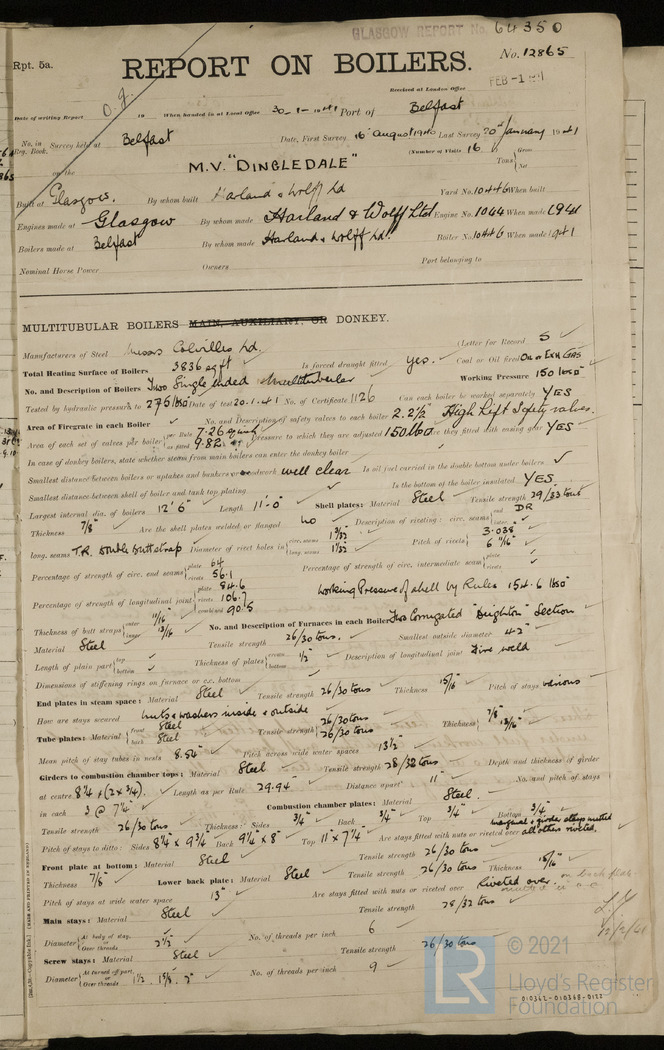 GLASGOW REPORT No. 64350
Rpt. 5a.
REPORT ON BOILERS.
No. 12865
Received at London Office FEB -1 1941
Date of writing Report 19 When handed in at Local Office 30-1-1941 Port of Belfast
No. in Reg. Book. Survey held at Belfast Date, First Survey 16 August 1940 Last Survey 20th January 1941
(Number of Visits 16) Gross Tons Net
on the M.V. "DINGLEDALE"
Built at Glasgow. By whom built Harland & Wolff Ld Yard No. 1044G When built
Engines made at Glasgow By whom made Harland & Wolff Ltd Engine No. 1044 When made 1941
Boilers made at Belfast By whom made Harland & Wolff Ld. Boiler No. 1044G When made 1941
Nominal Horse Power Owners Port belonging to
MULTITUBULAR BOILERS MAIN, AUXILIARY, OR DONKEY.
Manufacturers of Steel Messrs Colvilles Ld. (Letter for Record S)
Total Heating Surface of Boilers 3836 sq ft Is forced draught fitted yes. Coal or Oil fired Oil or Exh Gas
No. and Description of Boilers Two Single ended Multitubular Working Pressure 150 lbs
Tested by hydraulic pressure to 275 lbs Date of test 20.1.41 No. of Certificate 1126 Can each boiler be worked separately YES
Area of Firegrate in each Boiler No. and Description of safety valves to each boiler 2. 2½" High Lift Safety valves.
Area of each set of valves per boiler per Rule 7.26 as fitted 9.82 Pressure to which they are adjusted 150 lbs Are they fitted with easing gear YES
In case of donkey boilers, state whether steam from main boilers can enter the donkey boiler
Smallest distance between boilers or uptakes and bunkers or woodwork well clear Is oil fuel carried in the double bottom under boilers
Smallest distance between shell of boiler and tank top plating Is the bottom of the boiler insulated YES
Largest internal dia. of boilers 12' 6" Length 11'-0" Shell plates: Material Steel Tensile strength 29/33 tons
Thickness 7/8" Are the shell plates welded or flanged No Description of riveting: circ. seams end DR inter.
long. seams T.R. Double Butt strap Diameter of rivet holes in circ. seams long. seams Pitch of rivets 3.038"
Percentage of strength of circ. end seams plate 64 rivets 56.1 Percentage of strength of circ. intermediate seam plate rivets
Percentage of strength of longitudinal joint plate 84.6 rivets 106.7 combined 90.5 Working Pressure of shell by Rules 154.6 lbs
Thickness of butt straps outer 11/16" inner 13/16" No. and Description of Furnaces in each Boiler Two Corrugated "Deighton" Section
Material Steel Tensile strength 26/30 tons. Smallest outside diameter 42"
Length of plain part top bottom Thickness of plates crown bottom ½" Description of longitudinal joint Fire weld
Dimensions of stiffening rings on furnace or c.c. bottom
End plates in steam space: Material Steel Tensile strength 26/30 tons Thickness 15/16" Pitch of stays various
How are stays secured nuts & washers inside & outside
Tube plates: Material front Steel back Steel Tensile strength 26/30 tons 26/30 tons Thickness 7/8" 13/16"
Mean pitch of stay tubes in nests 8.54" Pitch across wide water spaces 13½"
Girders to combustion chamber tops: Material Steel Tensile strength 28/32 tons Depth and thickness of girder
at centre 8¼ (2 x ¾). Length as per Rule 29.94" Distance apart 11" No. and pitch of stays
in each 3 @ 7¼" Combustion chamber plates: Material Steel.
Tensile strength 26/30 tons Thickness: Sides ¾" Back ¾" Top ¾" Bottom ¾"
Pitch of stays to ditto: Sides 8¼ x 9¾" Back 9¼" x 8" Top 11" x 7¼" Are stays fitted with nuts or riveted over marginal & girder stays nutted all others riveted.
Front plate at bottom: Material Steel Tensile strength 26/30 tons
Thickness 7/8" Lower back plate: Material Steel Tensile strength 26/30 tons Thickness 15/16"
Pitch of stays at wide water space 13" Are stays fitted with nuts or riveted over Riveted over.
Main stays: Material Steel Tensile strength 28/32 tons
Diameter At body of stay, or Over threads 2½" No. of threads per inch 6
Screw stays: Material Steel Tensile strength 26/30 tons
Diameter At turned off part, or Over threads No. of threads per inch 9
12/2/41
© 2021
LR
Lloyd's Register
Foundation
010362-010368-0122